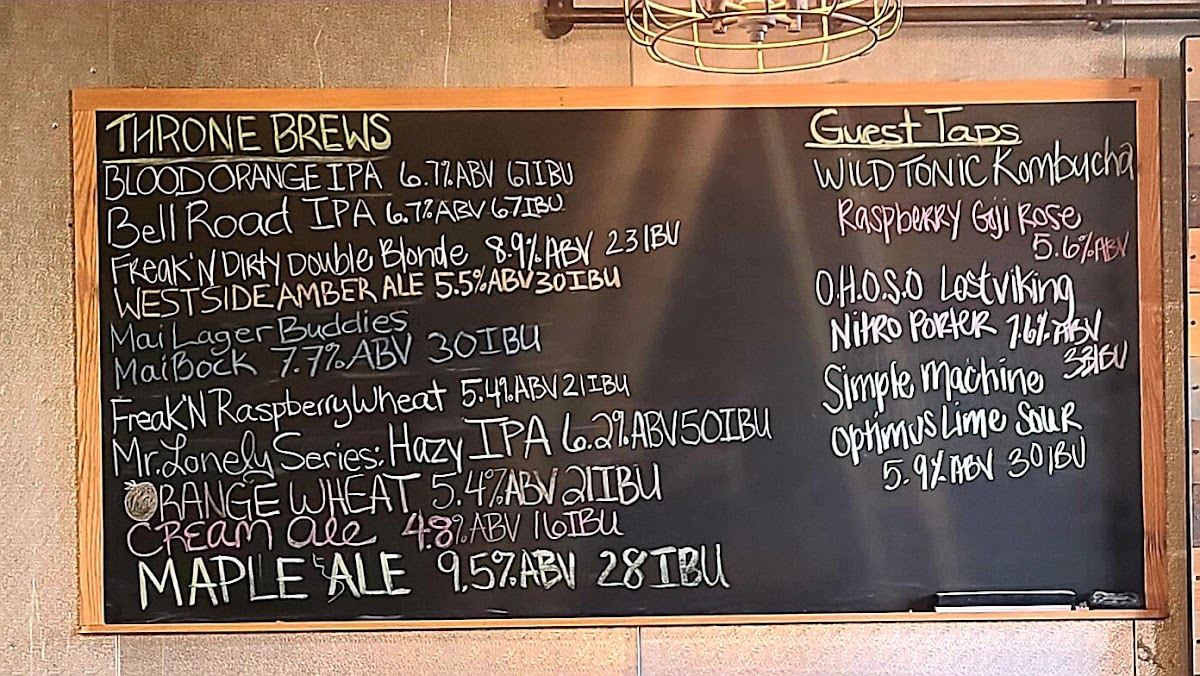 THRONE BREWS
BLOOD ORANGE IPA 6.7%ABV 67IBU
Bell Road IPA 6.7%ABV 67IBU
Freak'N Dirty Double Blonde 8.9%ABV 23IBU
WESTSIDE AMBER ALE 5.5%ABV 30IBU
Mai Lager Buddies
MaiBock 7.7%ABV 30IBU
Freak'N Raspberry Wheat 5.4%ABV 21IBU
Mr. Lonely Series: Hazy IPA 6.2%ABV 50IBU
ORANGE WHEAT 5.4%ABV 21IBU
CREAM ale 4.8%ABV 16IBU
MAPLE ALE 9.5%ABV 28IBU
Guest Taps
WILD TONIC Kombucha
Raspberry Goji Rose
5.6%ABV
O.H.O.S.O Lost viking
Nitro Porter 7.6%ABV
33IBU
Simple Machine
Optimus Lime Sour
5.9%ABV 30IBU